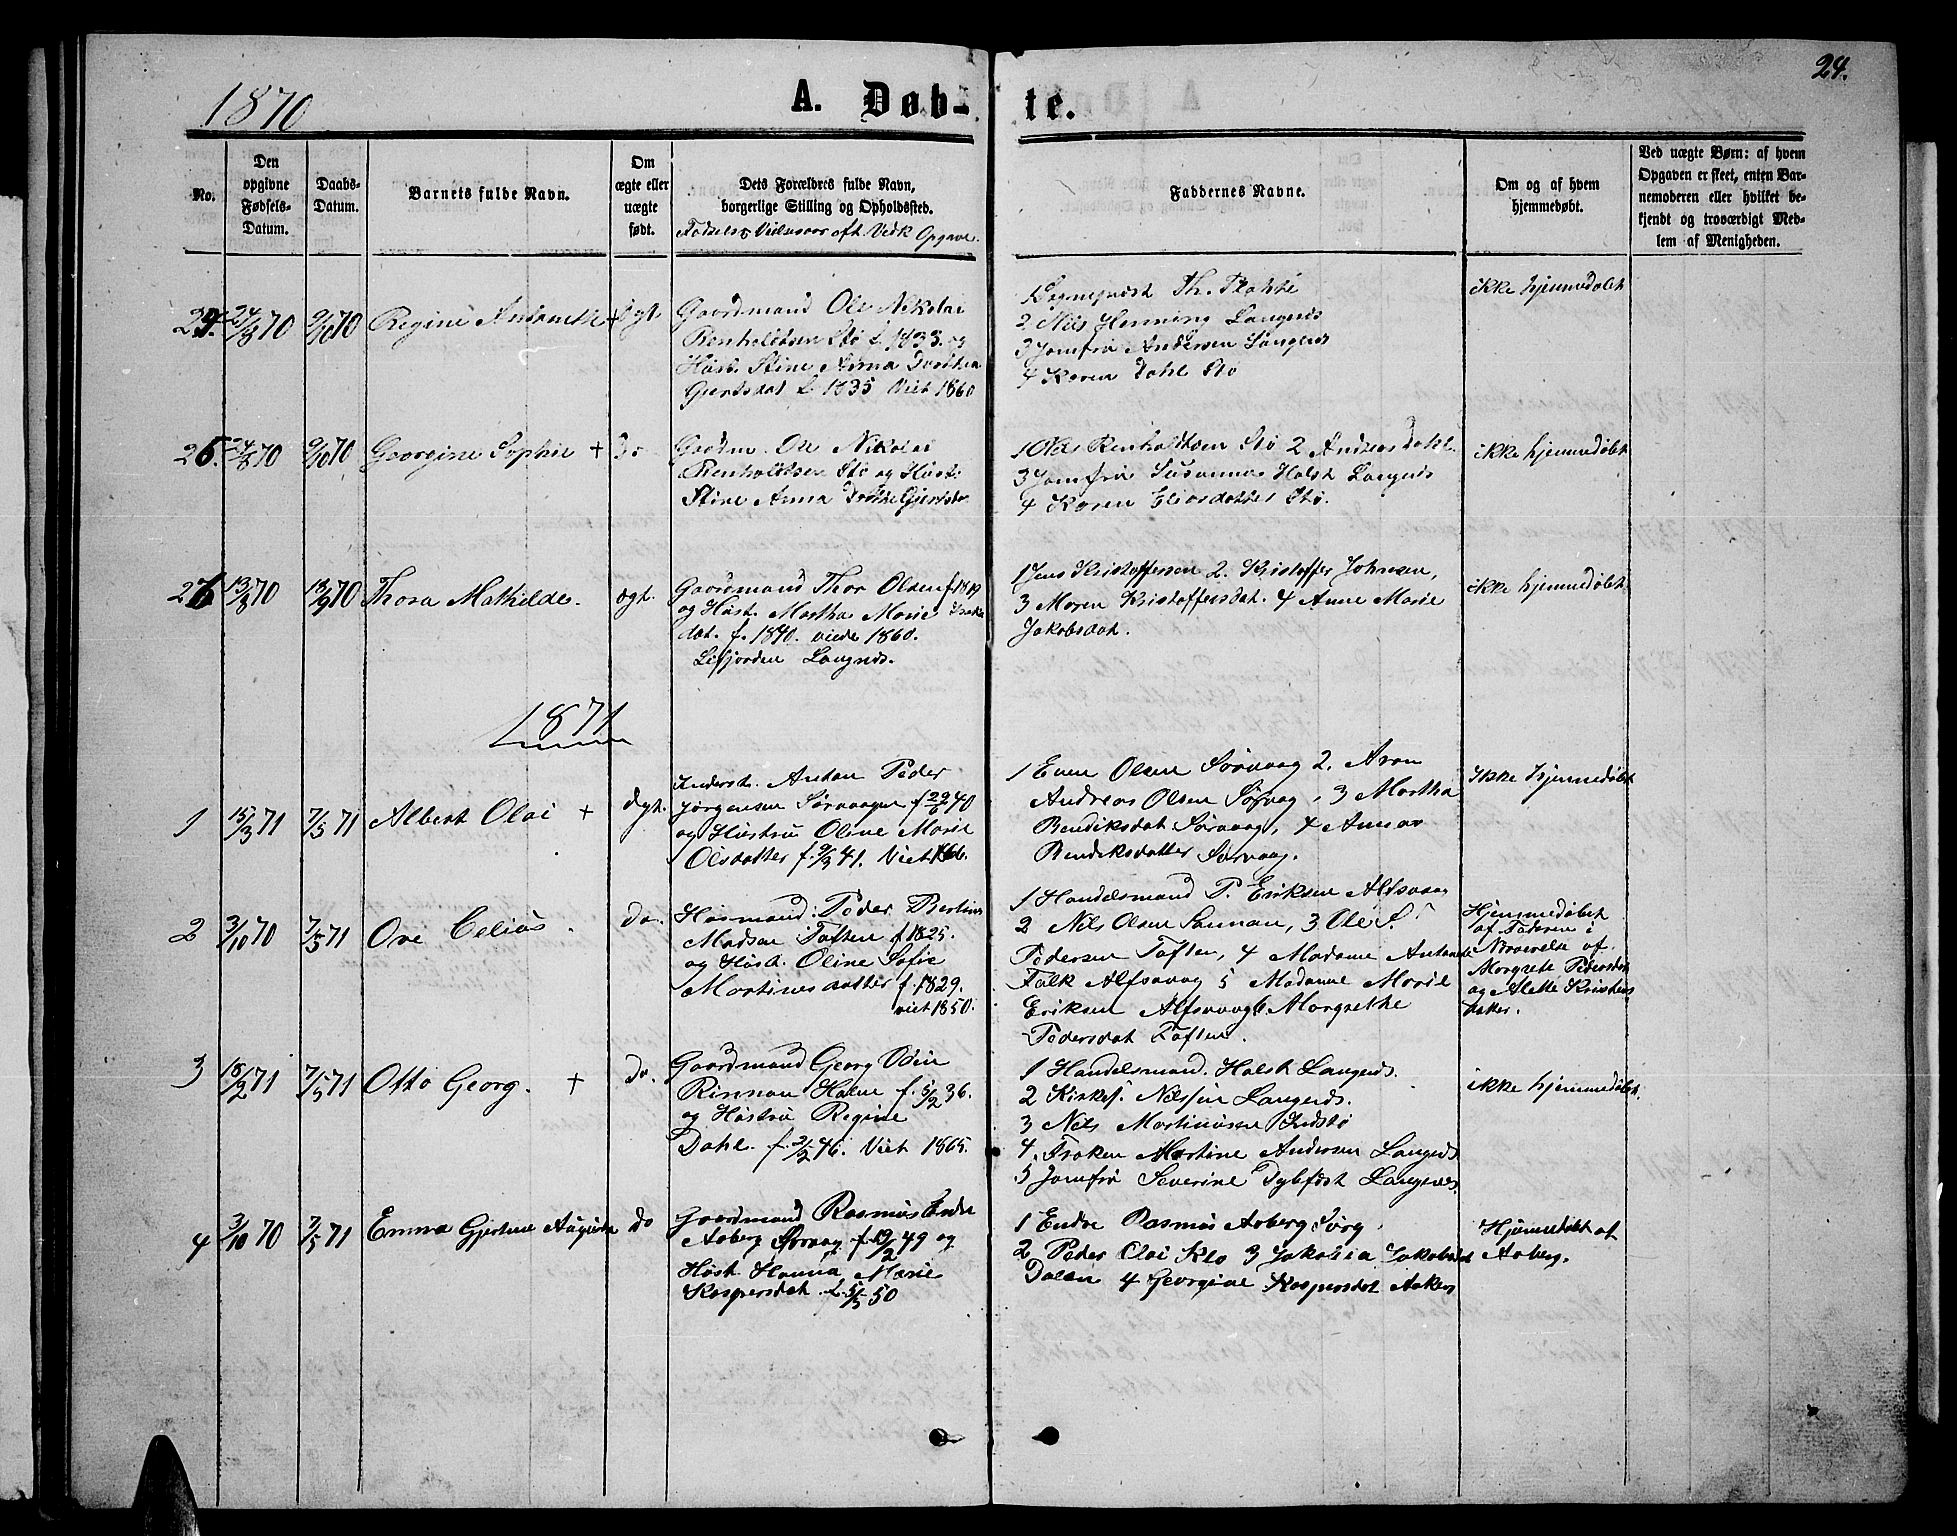 1870
A. Døb-
te.
24.
No.
Den opgivne Fødsels-Datum.
Daabs-Datum.
Barnets fulde Navn.
Om ægte eller uægte født.
Dets Forældres fulde Navn, borgerlige Stilling og Opholdssted.
Fødsels & Vielsesaar eft. Vedk Opgave.
Faddernes Navne.
Om og af hvem hjemmedøbt.
Ved uægte Børn: af hvem
Opgaven er skeet, enten Bar-
nemoderen eller hvilket be-
kjendt og troværdigt Med-
lem af Menigheden.
24. 24/8 70 9/10 70 Regine Antonette + Ægt
Gaardmand Ole Nikolai
Renholdtsen Stø f. 1833. og
Hust. Stine Anna Dorthea
Gjertsdat f. 1835 Viet 1860
1 Th.
2 Nils Henning Langenæs
3 Jomfru Andersen Langenæs
4 Karen Dahl Stø
ikke hjemmedøbt
25. 24/8 70 9/10 70 Georgine Sophie + Do
Gaardm. Ole Nikolai
Renholdtsen Stø og Hust.
Stine Anna Dorthe Gjertsdr
1 Ole Renholdtsen Stø 2 Andreas Dahl
3 Jomfru Susanna Holst Langenæs
4 Karen Eliasdatter Stø.
ikke hjemmedøbt
26 13/8 70 18/9 70 Thora Mathilde. ægt.
Gaardmand Thor Olsen
og Hust. Martha Marie
dat. f. 1840. viede 1860.
Lifjorden Langnæs.
1 Jens Kristoffersen 2. Kristoffer Johnsen,
3 Maren Kristoffersdat. 4 Anne Marie
Jakobsdat.
ikke hjemmedøbt
1871
1 15/3 71 7/5 71 Albert Olai + Ægt.
Inderst. Anton Peder
Jørgensen Sørvaagen
og Hustru Oline Marie
Olsdatter f. 9/3 41. Viet 1866.
1 Even Olsen Sørvaag 2. Aron
Andreas Olsen Sørvag, 3 Martha
Bendiksdat. Sørvaag, 4 Anna
Bendiksdatter Sørvaag.
Ikke hjemmedøbt
2 3/10 70 7/5 71 Ove Celius. do.
Husmand: Peder Bertin
Madsen Toften f. 1825.
og Hust. Oline Sofie
Mortinesdatter f. 1829.
viet 1850.
1 Handelsmand P. Eriksen Alfsvaag
2 Nils Olsen Sannan, 3 Ole S.
Pedersen Toften, 4 Madame Antonette
Falk Alfsvaag 5 Madame Marie
Eriksen Alfsvaag 6. Margrethe
Pedersdat Toften.
Hjemmedøbt
af Faderen i
Nærværelse af
Margrete Pedersdat
og Alette Kristens
datter.
3 18/2 71 7/5 71 Otto Georg. + do.
Gaardmand Georg Odin
Rinnan Holm f. 5/2 36.
og Hustru Regine
Dahl. f. 2/2 46. Viet 1865.
1 Handelsmand. Holst Langenæs.
2 Kirkes. Nilssen Langenæs.
3 Nils Martinussen
4. Frøken Martine Andersen Langenæs
5 Jomfru Severine Dybfest Langenæs.
ikke hjemmedøbt.
4 3/10 70 7/5 71 Emma Gjertine Augusta do
Gaardmand Rasmus Endre
Aaberg Sørvag f. 19/2 49 og
Hust. Hanna Marie
Kaspersdat. f. 5/5 50
1 Endre Rasmus Aaberg Sørvg
2. Peder Olai Klo 3 Jakobia Jakobsdat
Dalen 4 Georgine Kaspersdat Aakers
Hjemmedøbt af
Aaberg.